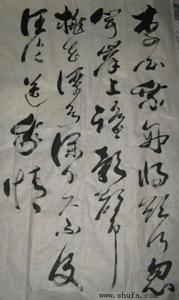 李白乘舟将欲行忽
闻岸上踏歌声
桃花潭水深千尺不及
汪伦送我情
www.shufa.com